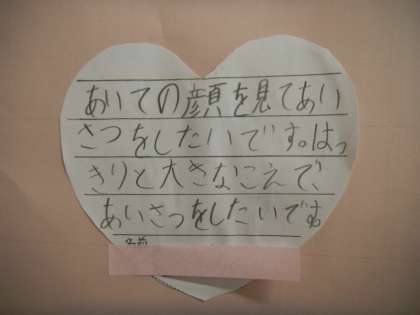 あいての顔を見てあい
さつをしたいです。はっ
きりと大きなこえで、
あいさつをしたいです
名前